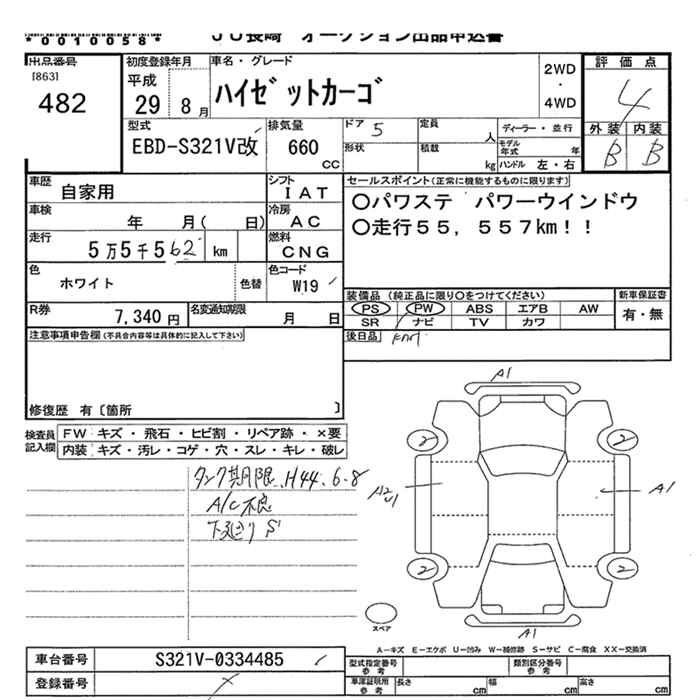 *0010058*
JU長崎 オークション出品申込書
出品番号
[863]
482
初度登録年月
平成
29 8月
車名・グレード
ハイゼットカーゴ
2WD
・
4WD
評価点
4
外装 内装
B B
型式
EBD-S321V改
排気量
660
CC
ドア 5
定員
人
ディーラー・並行
形状
積載
kg
モデル年式 年
ハンドル 左・右
車歴
自家用
シフト
IAT
セールスポイント(正常に機能するものに限ります)
○パワステ パワーウインドウ
○走行55,557km!!
車検
年 月( 日)
冷房
AC
走行
5万5千562 km
燃料
CNG
色
ホワイト
色替
色コード
W19
装備品 (純正品に限り○をつけてください)
新車保証書
PS PW ABS エアB AW
有・無
SR ナビ TV カワ
R券
7,340円
名変通知期限
月 日
後日品
注意事項申告欄(不具合内容等は具体的に記入して下さい)
修復歴 有〔箇所 〕
検査員
記入欄
FW キズ・飛石・ヒビ割・リペア跡・×要
内装 キズ・汚レ・コゲ・穴・スレ・キレ・破レ
タンク期限.H44.6.8
A/C不良
下廻りS1
A1
2 2
A2
U1
A1
2 2
スペア
A1
A-キズ E-エクボ U-凹み W-補修跡 S-サビ C-腐食 XX-交換済
車台番号
S321V-0334485
登録番号
型式指定番号
参考
類別区分番号
参考
車庫証明用
参考
長さ cm 幅 cm 高さ cm